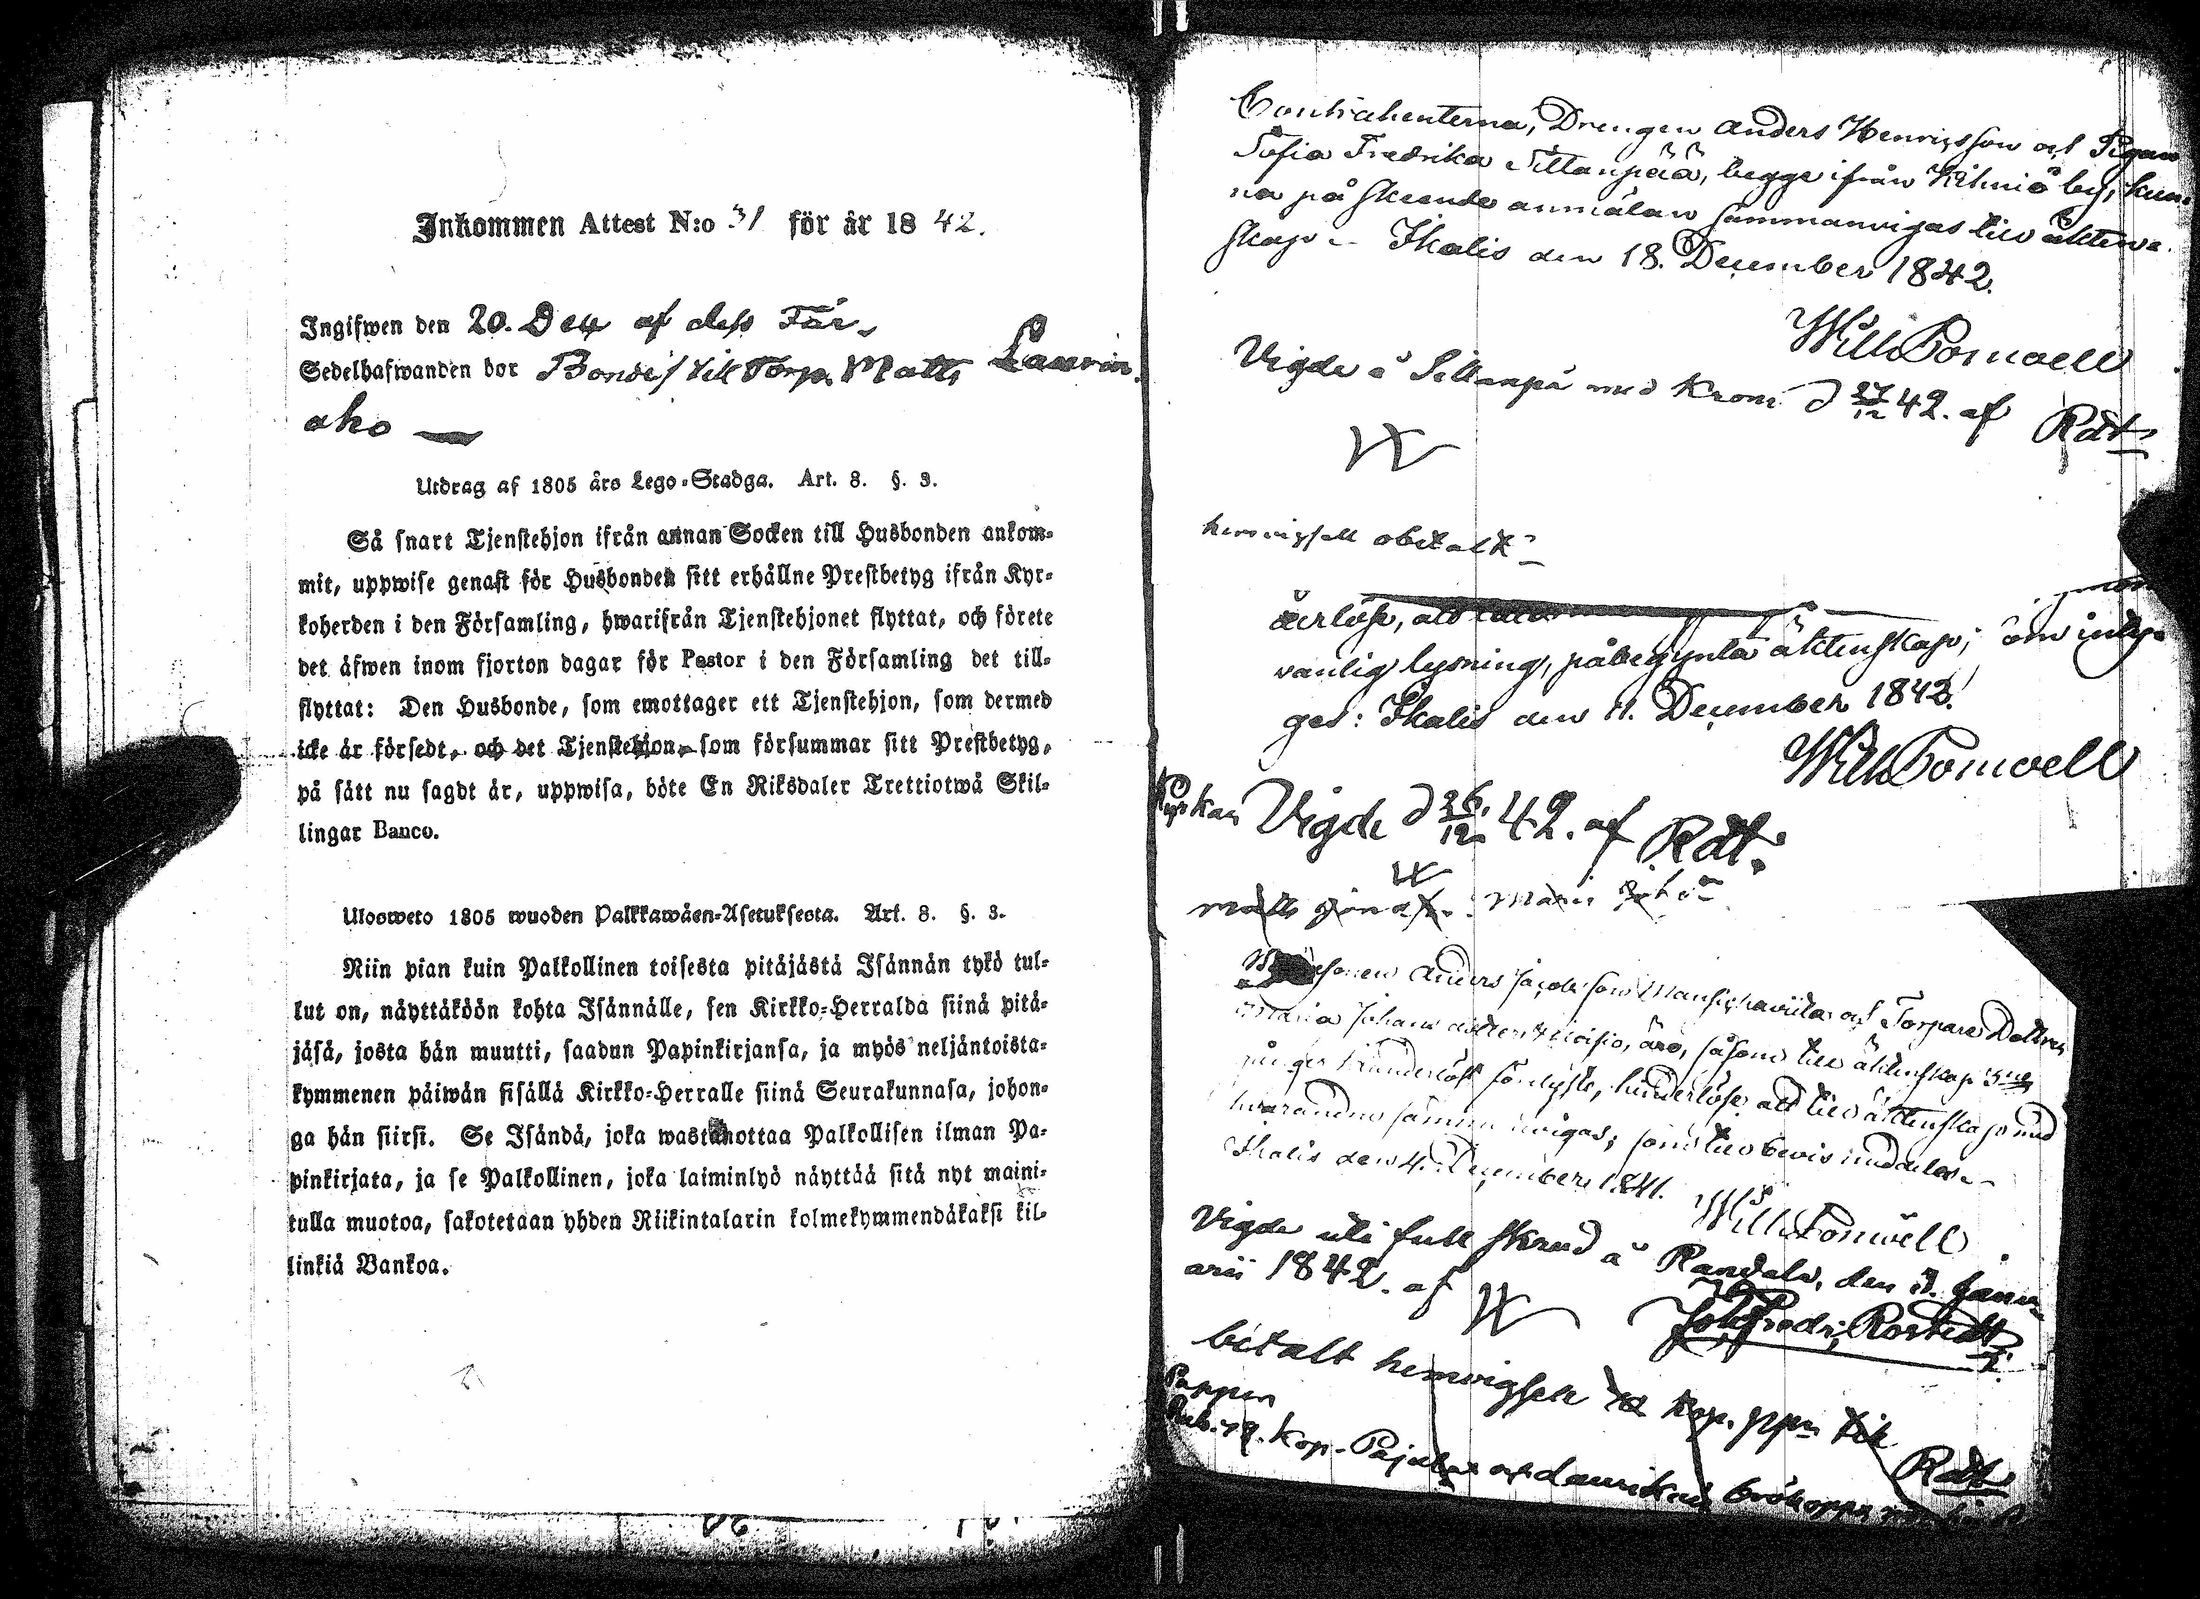 Inkommen Attest N:o 31 för år 1842.
Ingifwen den 20. Dec af dess Far,
Sedelhafwanden bor Bonde/ till Torp. Matts Laurin
aho
Utdrag af 1805 års Lego-Stadga. Art. 8. §. 3.
Så snart Tjenstehjon ifrån annan Socken till Husbonden ankom-
mit, uppwise genast för Husbonden sitt erhållne Prestbetyg ifrån Kyr-
koherden i den Församling, hwarifrån Tjenstehjonet flyttat, och förete
det äfwen inom fjorton dagar för Pastor i den Församling det till-
flyttat: Den Husbonde, som emottager ett Tjenstehjon, som dermed
icke är försedt, och det Tjenstehjon, som försummar sitt Prestbetyg,
på sätt nu sagdt är, uppwisa, böte En Riksdaler Trettiotwå Skil-
lingar Banco.
Ulosweto 1805 wuoden Palkkawäen-Asetuksesta. Art. 8. §. 3.
Niin pian kuin Palkollinen toisesta pitäjästä Isännän tykö tul-
lut on, näyttäköön kohta Isännälle, sen Kirkko-Herralda siinä pitä-
jäsä, josta hän muutti, saadun Papinkirjansa, ja myös neljäntoista-
kymmenen päiwän sisällä Kirkko-Herralle siinä Seurakunnasa, johon-
ga hän siirsi. Se Isändä, joka wastanottaa Palkollisen ilman Pa-
pinkirjata, ja se Palkollinen, joka laiminlyö näyttää sitä nyt maini-
tulla muotoa, sakotetaan yhden Riikintalarin kolmekymmendäkaksi kil-
linkiä Bankoa.
Contrahenterna, Drengen Anders Henricsson och Pigan
Sofia Fredrika Sillanpää, begge ifrån Kihniö by, kun-
na på skeende anmälan sammanvigas till äktena-
skap. Ikalis den 18. December 1842.
Wilh Pomoell
Vigde å Sillanpä med Krona d 27/12 42. af Rdt
hemvigsell obetalt
ärlöse, att
vanlig lysning, påbegynta äktenskap; om intyg-
ges: Ikalis den 11. December 1842!
Wilh Pomoell
Kyrkan Vigde d 26/12 42. af Rdt.
Matts Maria
sonen Anders Jacobsson Mansikkaviita och Torpare Dottren
Maria Johans dotter äro, såsom till äktenskap 3ne
gånger hinderlöst förlyste, hinderlöse att till äktenskap med
hvarandra sammanvigas; som till bevis meddelas.
Ikalis den 4. December 1841. Wilh Pomoell
Vigde uti full skrud å Randala, den 3. Janu-
arii 1842. af Joh Fredr. Rostedt
betalt hemvigseln Kop. ppn till
Rdt
Pappen
Kop. Pajula och Laurikas